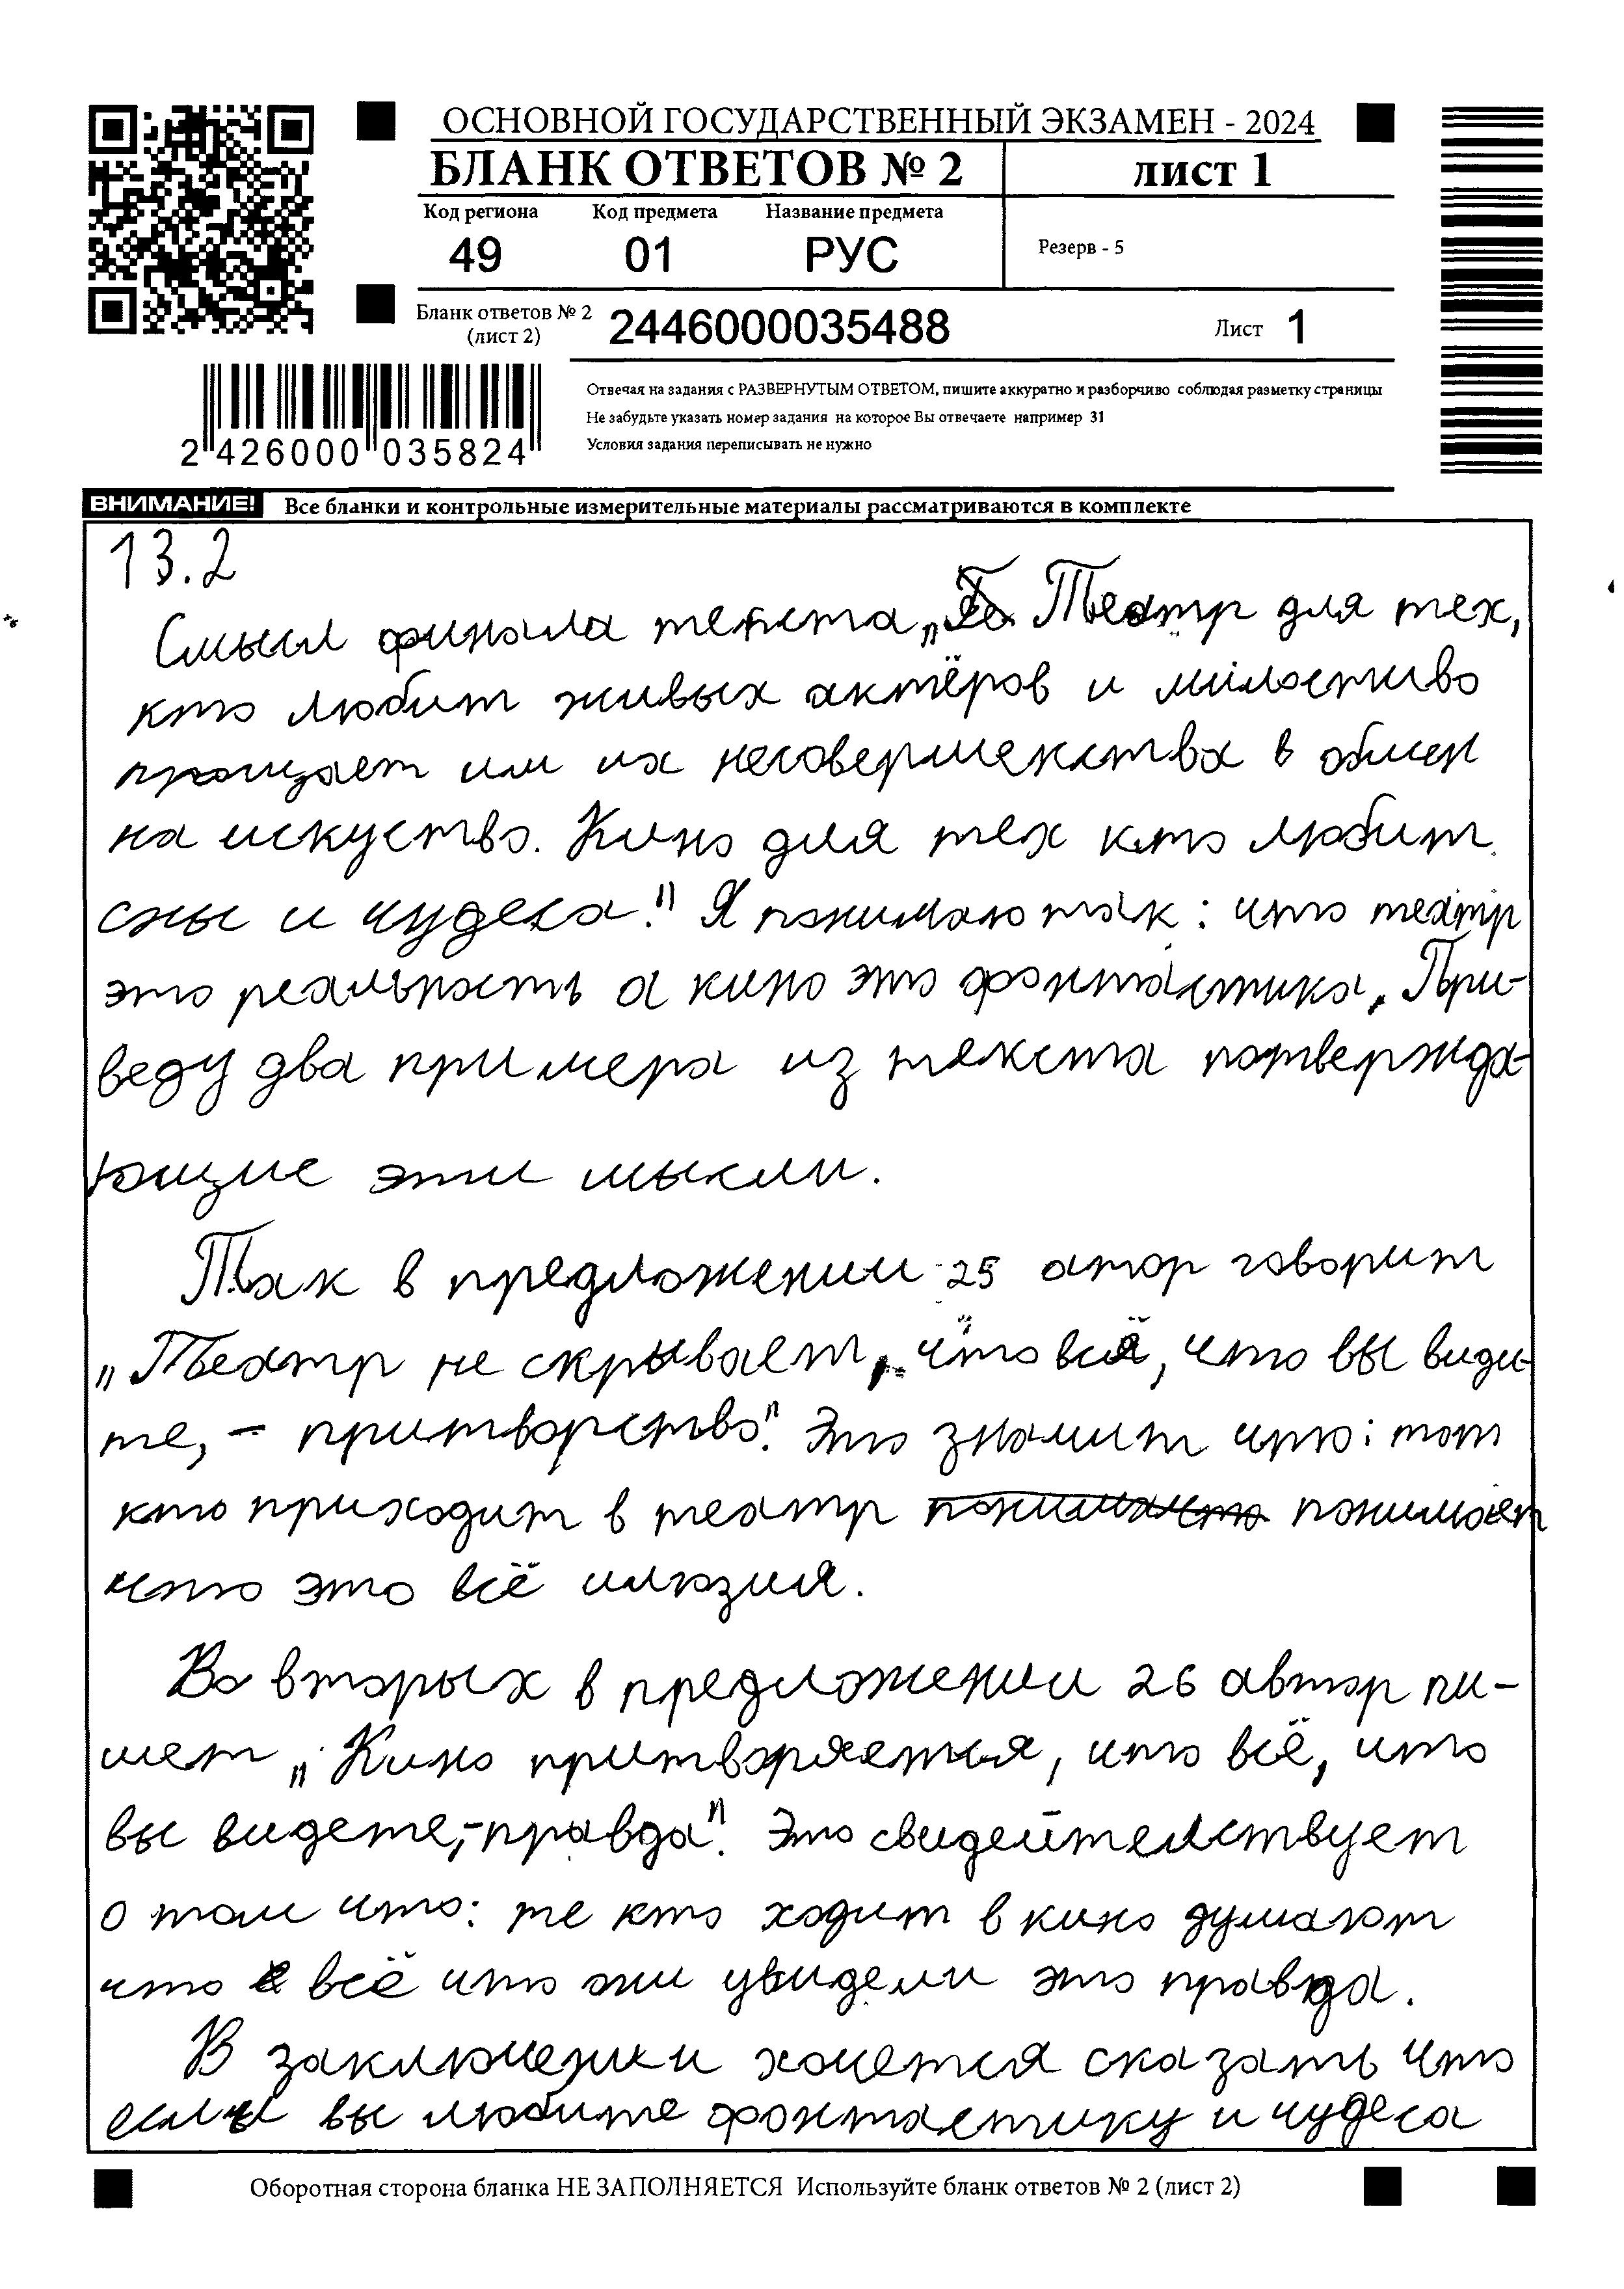 ОСНОВНОЙ ГОСУДАРСТВЕННЫЙ ЭКЗАМЕН - 2024
БЛАНК ОТВЕТОВ № 2 лист 1
Код региона Код предмета Название предмета
49 01 РУС Резерв - 5
Бланк ответов № 2 (лист 2) 2446000035488 Лист 1
Отвечая на задания с РАЗВЕРНУТЫМ ОТВЕТОМ, пишите аккуратно и разборчиво соблюдая разметку страницы
Не забудьте указать номер задания на которое Вы отвечаете например 31
Условия задания переписывать не нужно
2 426000 035824
ВНИМАНИЕ! Все бланки и контрольные измерительные материалы рассматриваются в комплекте
13.2
Смысл финала текста „Театр для тех,
кто любит живых актёров и милостиво
прощает им их несовершенства в обмен
на искуство. Кино для тех кто любит
сны и чудеса." Я понимаю так: что театр
это реальность а кино это фонтастика. При-
веду два примера из текста потвержда-
ющие эти мысли.
Так в предложении 25 атор говорит
„Театр не скрывает, что всё, что вы види-
те, - притворство". Это значит что: тот
кто приходит в театр понимает
что это всё илюзия.
Во вторых в предложении 26 автор пи-
шет „Кино притворяется, что всё, что
вы видете,-правда". Это свидетелствует
о том что: те кто ходит в кино думают
что всё что они увидели это правда.
В заключении хочется сказать что
если вы любите фонтастику и чудеса
Оборотная сторона бланка НЕ ЗАПОЛНЯЕТСЯ Используйте бланк ответов № 2 (лист 2)